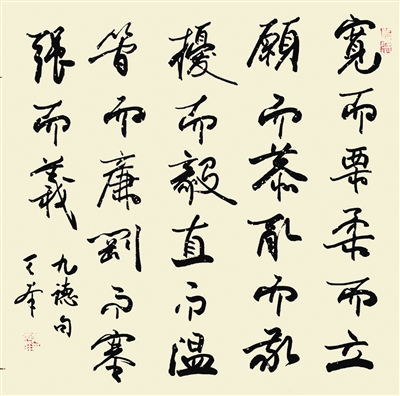 寬而栗柔而立
願而恭亂而敬
擾而毅直而温
簡而廉剛而塞
強而義
九德句